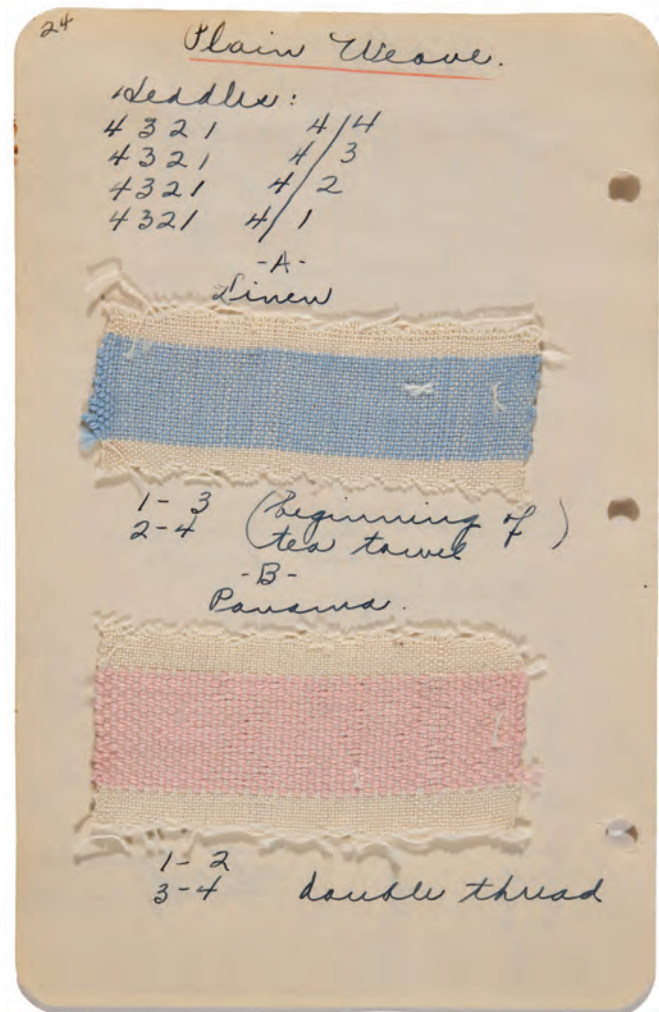 24
Plain Weave.
Heddles:
4 3 2 1 4/4
4 3 2 1 4/3
4 3 2 1 4/2
4 3 2 1 4/1
-A-
Linen
1-3 (beginning of)
2-4 (tea towel
-B-
Panama.
1-2
3-4 double thread